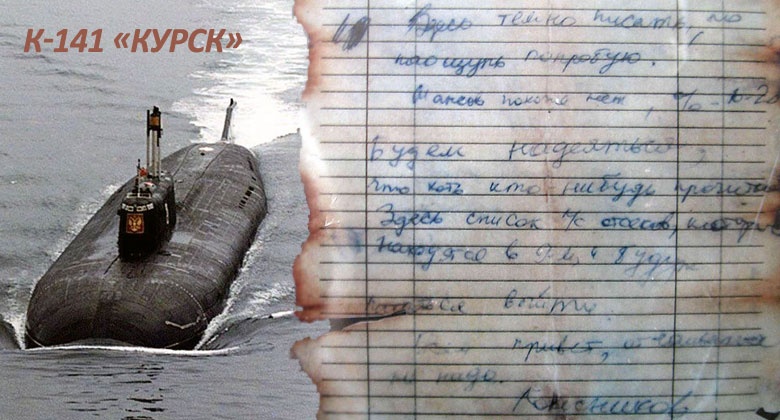 К-141 «КУРСК»
Здесь темно писать, но
наощупь попробую.
Шансов похоже нет, % - 10-20
Будем надеяться,
что хоть кто нибудь прочитает
Здесь список л/с отсеков, которые
находятся в 9-м, и будут
выйти.
привет, отчаиваться
не надо.
Колесников